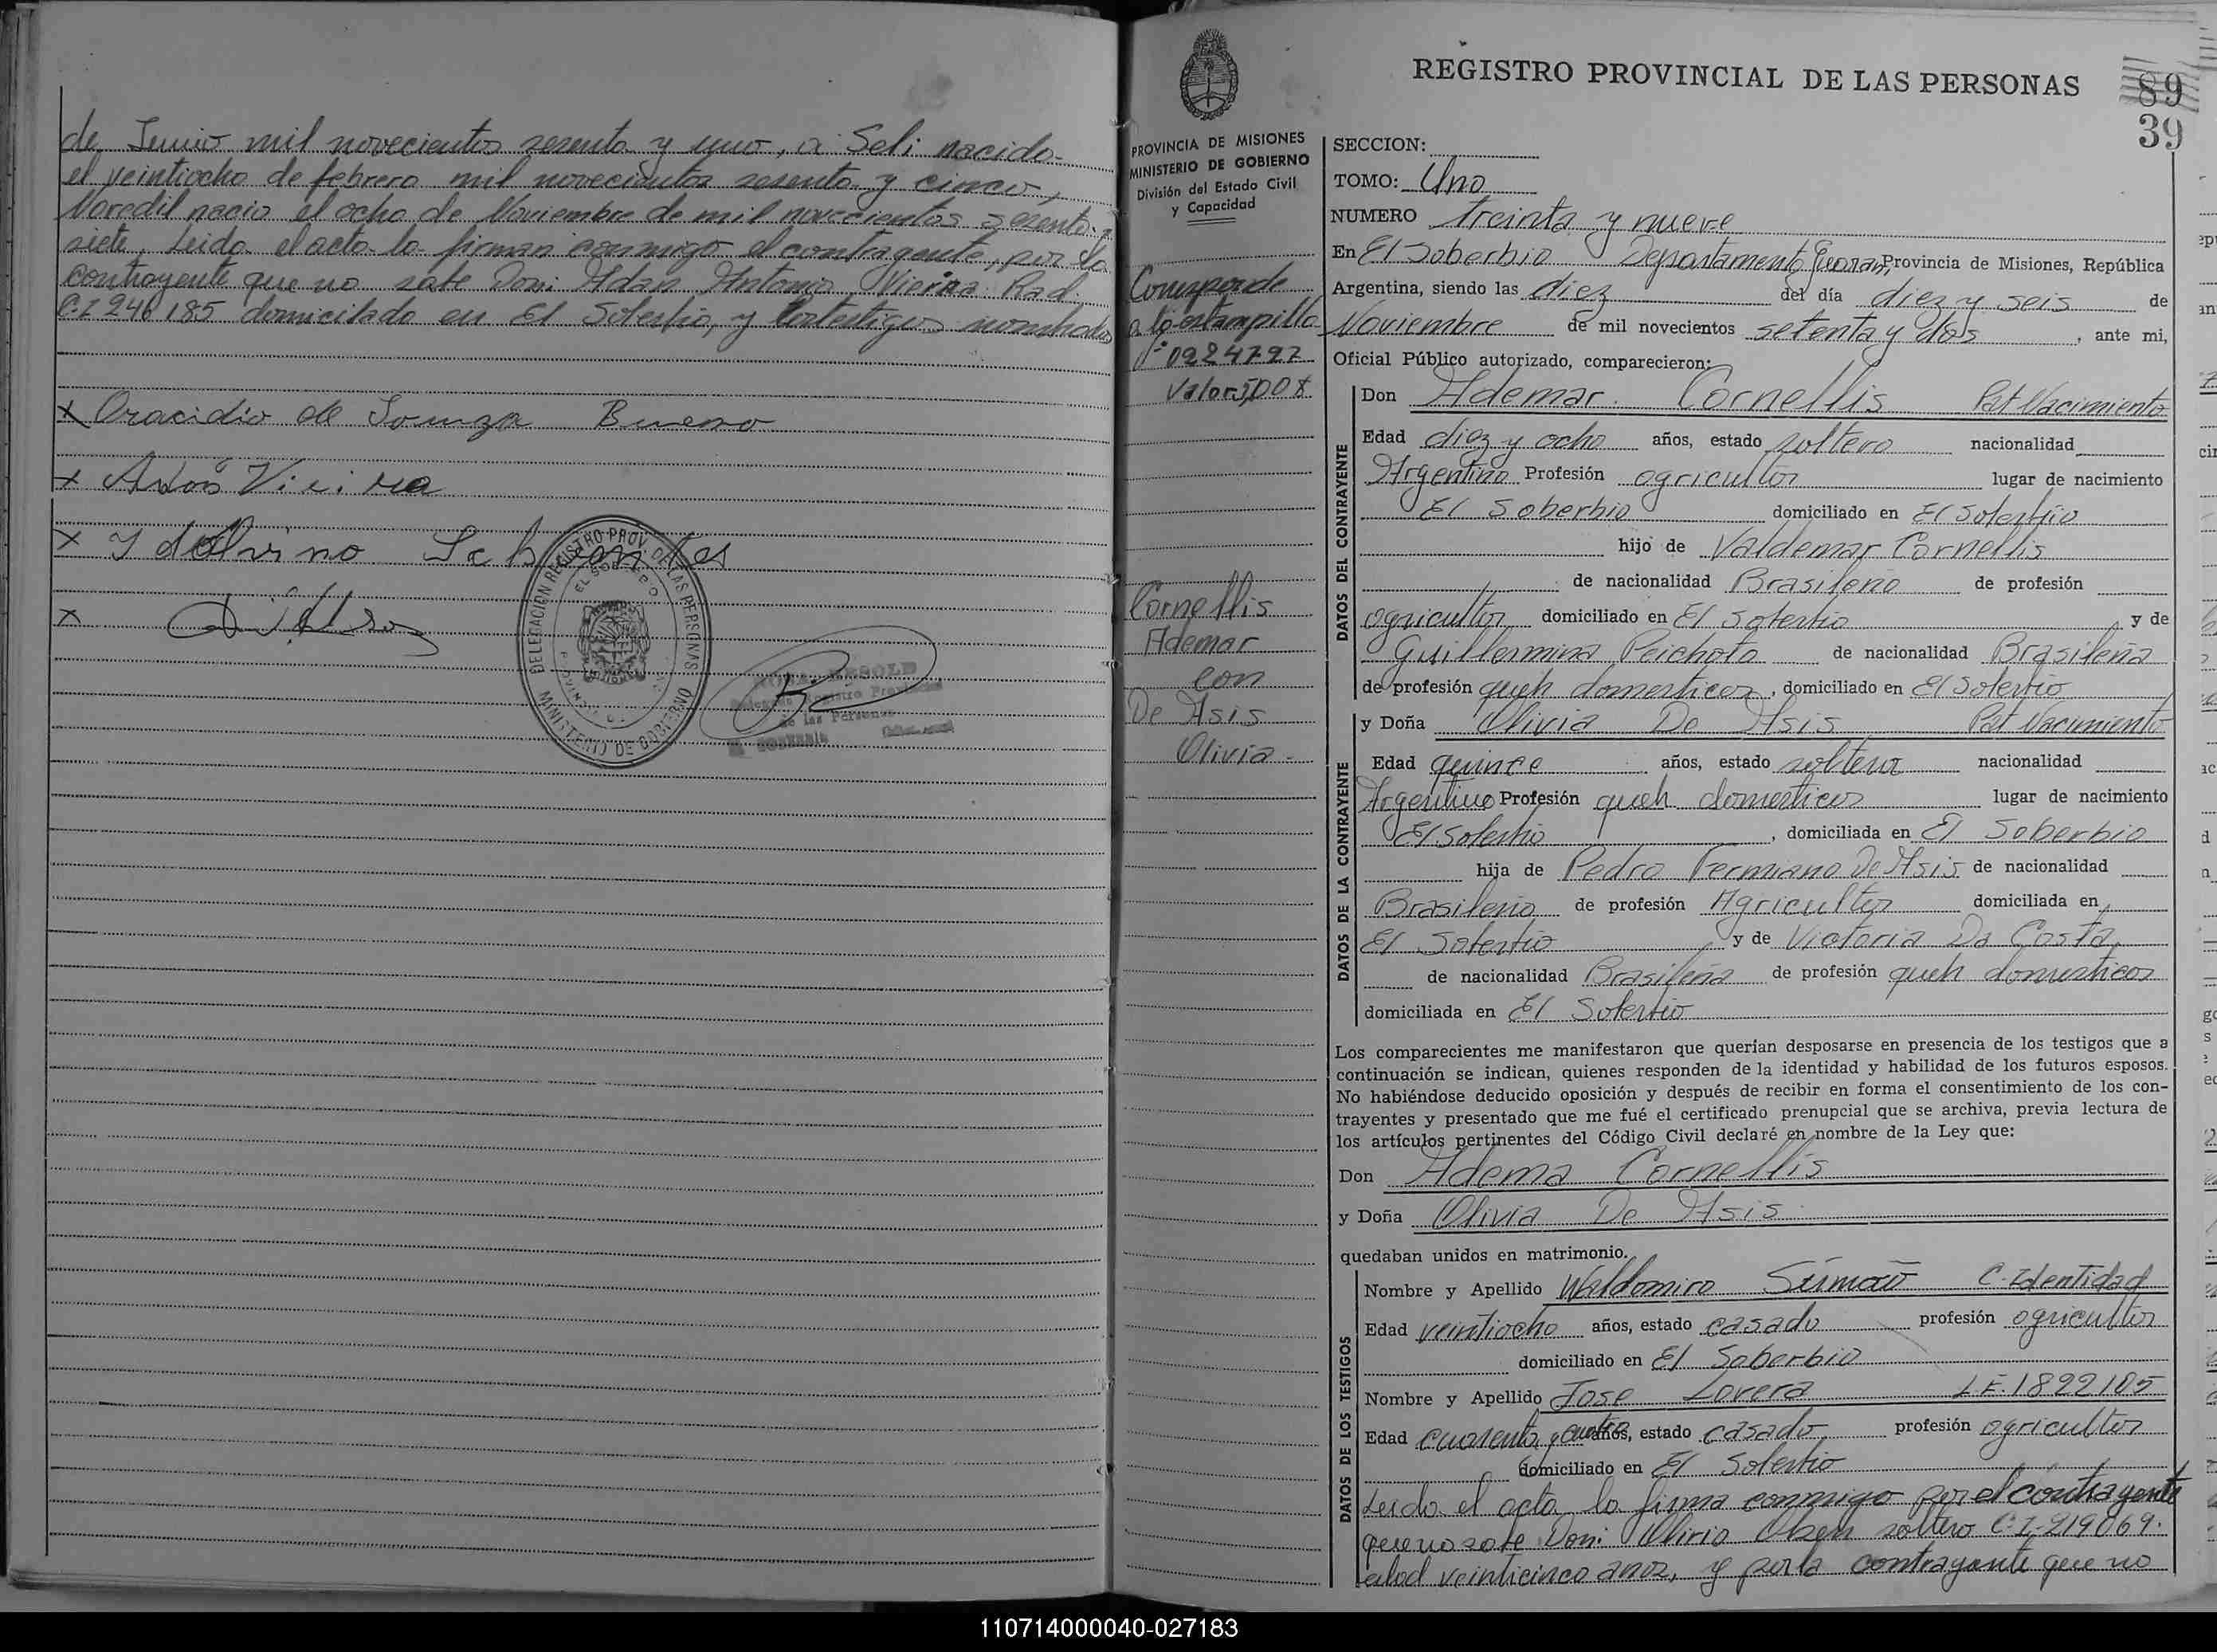 de Junio mil novecientos sesenta y uno, a Seli nacido
el veintiocho de febrero mil novecientos sesenta y cinco,
nacio el ocho de Noviembre de mil novecientos sesenta y
siete. Leida el acta la firman conmigo el contrayente, por la
contrayente que no sabe Don: Adan Antonio Vieira
C.I 246185 domicilado en El Soberbio, y los testigos nombrados
x Oracidio de Souza Bueno
x Adão Vieira
x
x
DELEGACION REGISTRO PROV. DE LAS PERSONAS
EL SOBERBIO
MINISTERIO DE GOBIERNO
de las Personas
EL SOBERBIO
REGISTRO PROVINCIAL DE LAS PERSONAS
89
39
PROVINCIA DE MISIONES
MINISTERIO DE GOBIERNO
División del Estado Civil
y Capacidad
Corresponde
a la estampilla
0924797
Valor 5,00 $
Cornellis
Ademar
con
De Asis
Olivia.-
SECCION:
TOMO: Uno
NUMERO treinta y nueve
En El Soberbio Departamento Guarani, Provincia de Misiones, República
Argentina, siendo las diez del día diez y seis de
Noviembre de mil novecientos setenta y dos, ante mi,
Oficial Público autorizado, comparecieron:
DATOS DEL CONTRAYENTE
Don Ademar Cornellis Part Nacimiento
Edad diez y ocho años, estado soltero nacionalidad
Argentino Profesión agricultor lugar de nacimiento
El Soberbio domiciliado en El Soberbio
hijo de Valdemar Cornellis
de nacionalidad Brasileño de profesión
agricultor domiciliado en El Soberbio y de
Guillermina Peichoto de nacionalidad Brasileña
de profesión queh domesticos, domiciliado en El Soberbio
DATOS DE LA CONTRAYENTE
y Doña Olivia De Asis Part Nacimiento
Edad quince años, estado soltera nacionalidad
Argentina Profesión queh domesticos lugar de nacimiento
El Soberbio, domiciliada en El Soberbio
hija de Pedro Fermiano De Asis de nacionalidad
Brasileño de profesión Agricultor domiciliada en
El Soberbio y de Victoria Da Costa
de nacionalidad Brasileña de profesión queh domesticos
domiciliada en El Soberbio
Los comparecientes me manifestaron que querían desposarse en presencia de los testigos que a
continuación se indican, quienes responden de la identidad y habilidad de los futuros esposos.
No habiéndose deducido oposición y después de recibir en forma el consentimiento de los con-
trayentes y presentado que me fué el certificado prenupcial que se archiva, previa lectura de
los artículos pertinentes del Código Civil declaré en nombre de la Ley que:
Don Adema Cornellis
y Doña Olivia De Asis
quedaban unidos en matrimonio.
DATOS DE LOS TESTIGOS
Nombre y Apellido Waldomiro Simão C. Identidad
Edad veintiocho años, estado casado profesión agricultor
domiciliado en El Soberbio
Nombre y Apellido Jose Lovera L.E. 1822105
Edad cuarenta y cuatro años, estado casado profesión agricultor
domiciliado en El Soberbio
Leida el acta la firma conmigo por el contrayente
que no sabe Don: Olirio soltero C.I-219069.
edad veinticinco anos, y por la contrayente que no
110714000040-027183